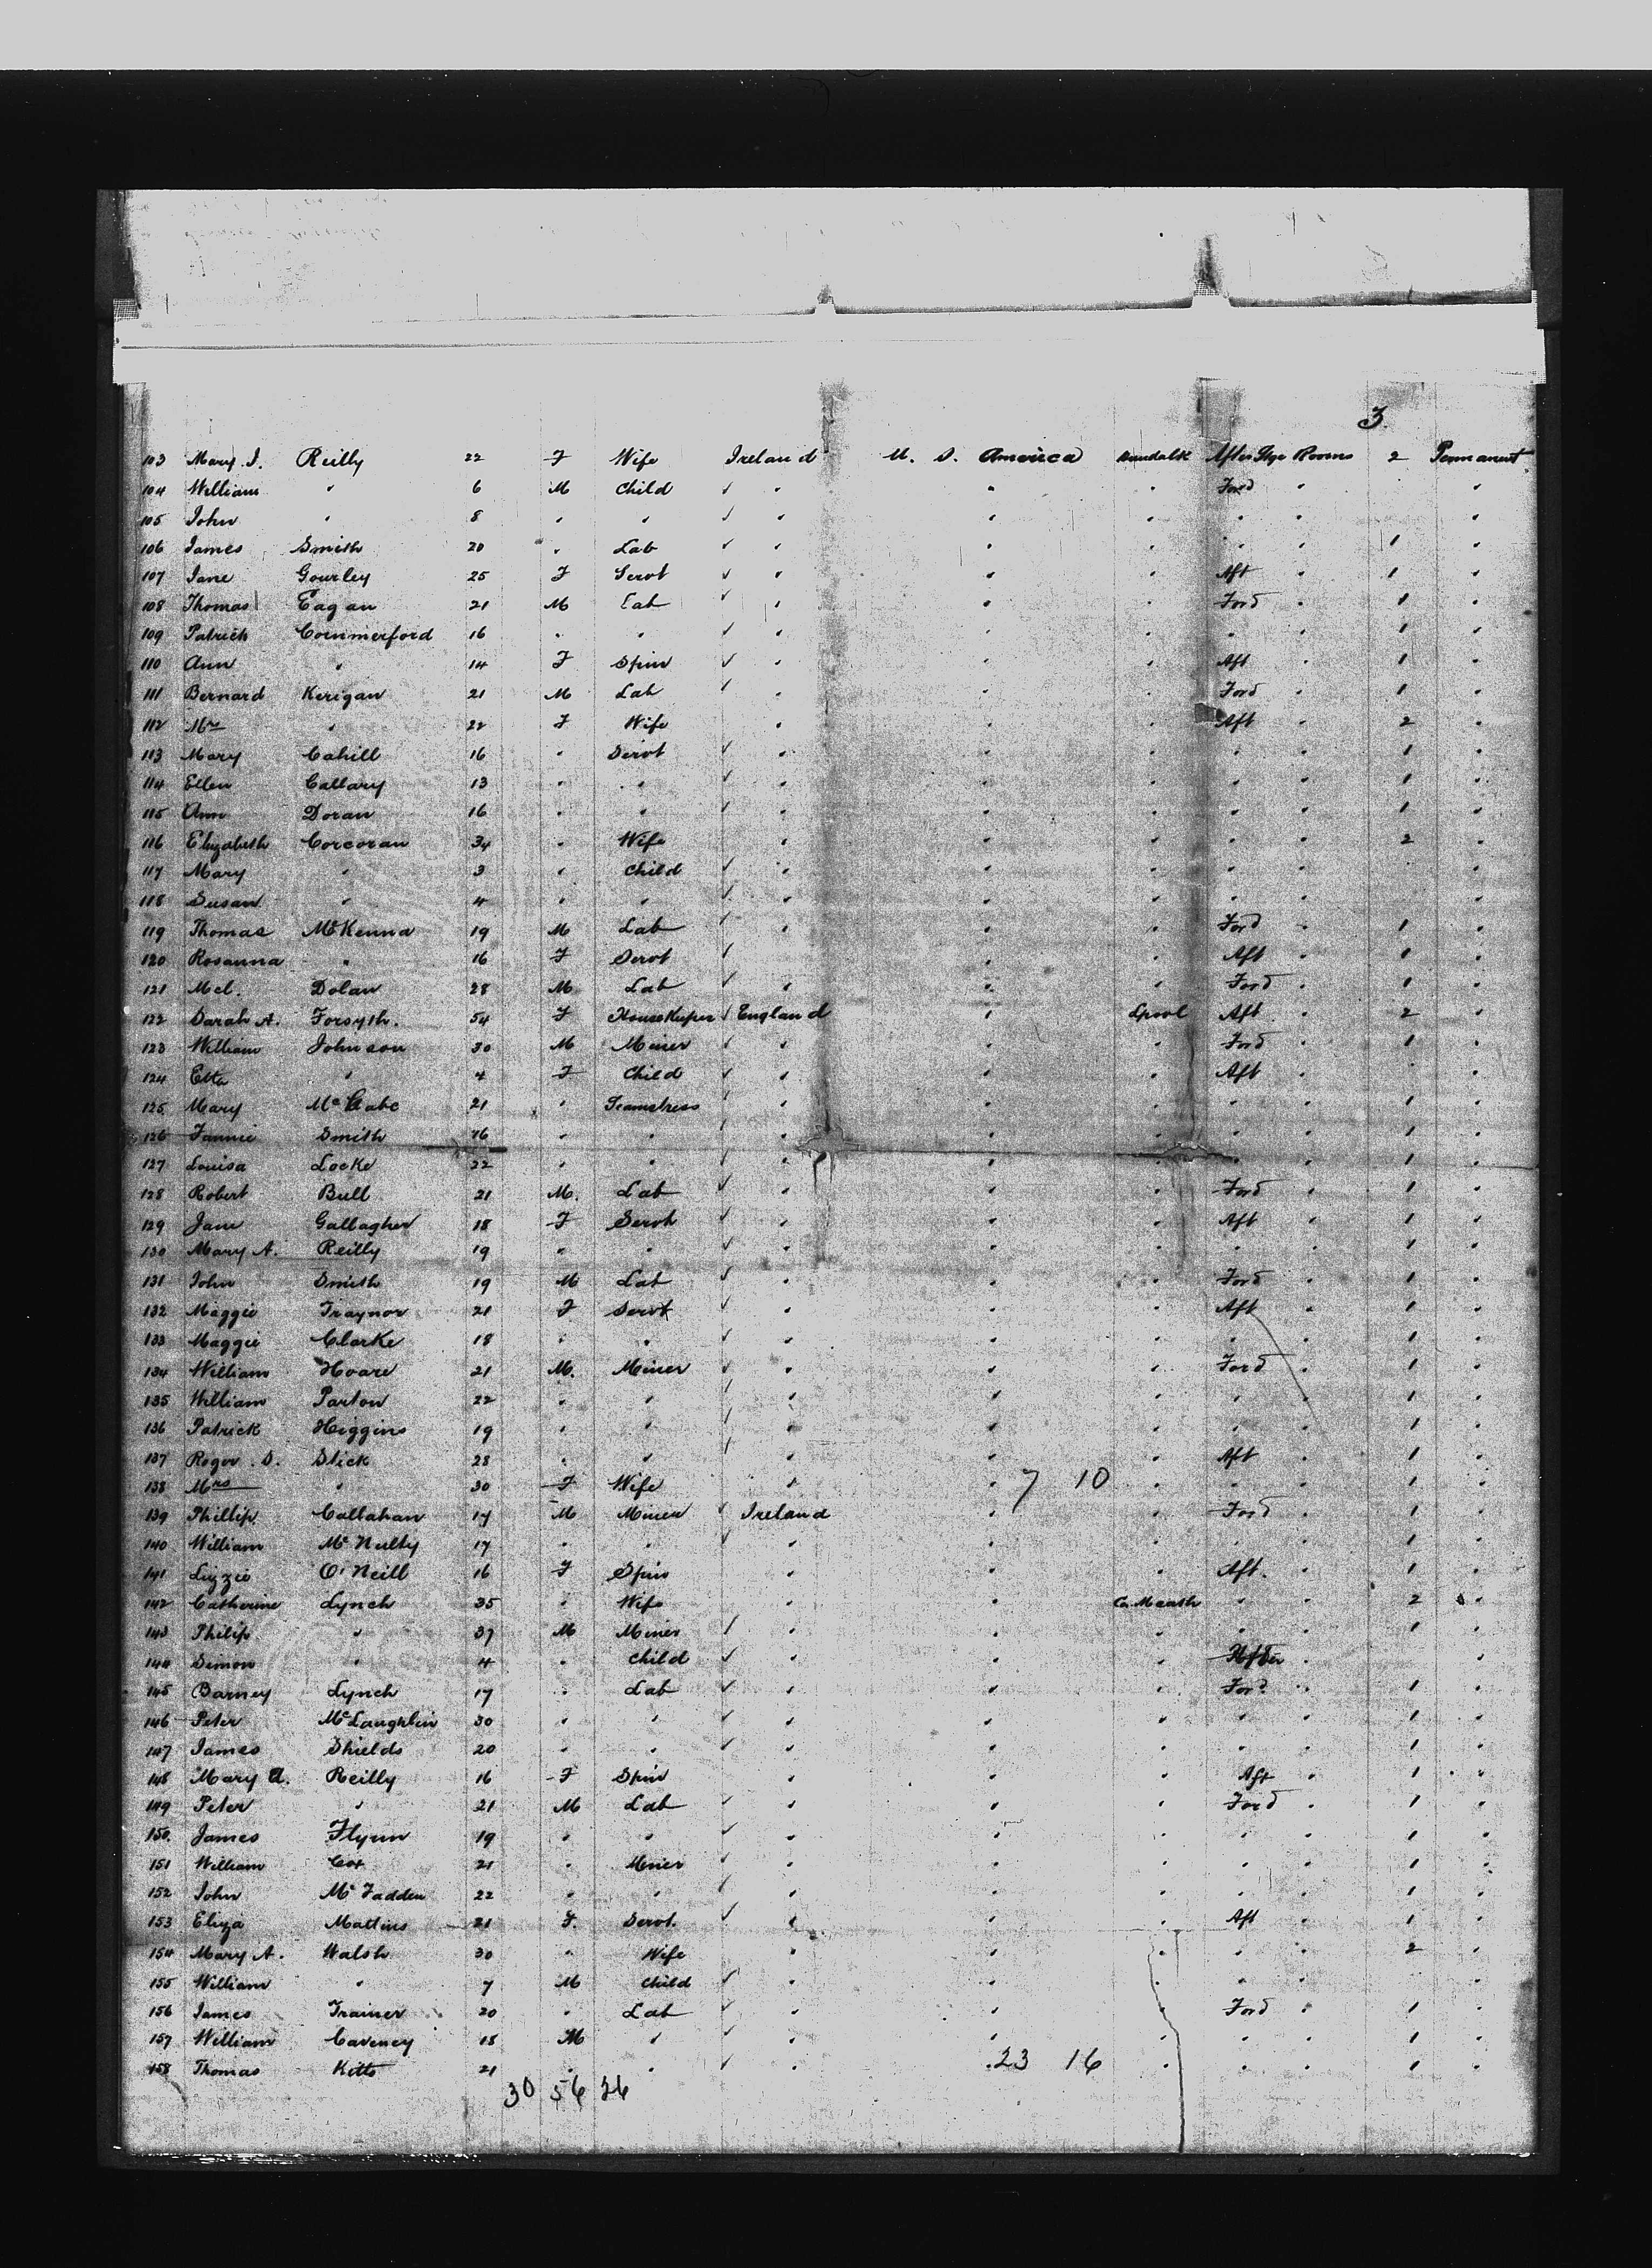 3
103 Mary. J. Reilly 22 F Wife Ireland U. S. America Dundalk After Stge Rooms 2 Permanent
104 William " 6 M Child ✓ " " " Ford " "
105 John " 8 " " ✓ " " " " " "
106 James Smith 20 " Lab ✓ " " " " " 1 "
107 Jane Gourley 25 F Servt ✓ " " " Aft " 1 "
108 Thomas Eagan 21 M Lab ✓ " " " Ford " 1 "
109 Patrick Commerford 16 " " ✓ " " " " " 1 "
110 Ann " 14 F Spin ✓ " " " Aft " 1 "
111 Bernard Kerigan 21 M Lab ✓ " " " Ford " 1 "
112 Mrs " 22 F Wife " " " Aft " 2 "
113 Mary Cahill 16 " Servt ✓ " " " " " 1 "
114 Ellen Callary 13 " " ✓ " " " " " 1 "
115 Ann Doran 16 " " ✓ " " " " " 1 "
116 Elizabeth Corcoran 34 " Wife " " " " " 2 "
117 Mary " 3 " Child ✓ " " " " " "
118 Susan " 4 " " ✓ " " " " " "
119 Thomas McKenna 19 M Lab ✓ " " " Ford " 1 "
120 Rosanna " 16 F Servt ✓ " " " Aft " 1 "
121 Mcl. Dolan 28 M Lab ✓ " " " Ford " 1 "
122 Sarah A. Forsyth. 54 F HouseKeeper ✓ England " Lpool Aft " 2 "
123 William Johnson 30 M Miner ✓ " " " Ford " 1 "
124 Etta " 4 F Child ✓ " " " Aft " "
125 Mary McCabe 21 " Seamstress ✓ " " " " " 1 "
126 Fannie Smith 16 " " ✓ " " " " " 1 "
127 Louisa Locke 22 " " ✓ " " " " " 1 "
128 Robert Bull 21 M. Lab ✓ " " " Ford " 1 "
129 Jane Gallagher 18 F Servt ✓ " " " Aft " 1 "
130 Mary A. Reilly 19 " " ✓ " " " " " 1 "
131 John Smith 19 M Lab ✓ " " " Ford " 1 "
132 Maggie Traynor 21 F Servt ✓ " " " Aft " 1 "
133 Maggie Clarke 18 " " ✓ " " " " " 1 "
134 William Hoare 21 M. Miner ✓ " " " Ford " 1 "
135 William Parton 22 " " ✓ " " " " " 1 "
136 Patrick Higgins 19 " " ✓ " " " " " 1 "
137 Roger. S. Slick 28 " " ✓ " " " Aft " 1 "
138 Mrs " 30 F Wife " " 7 10 " " " 1 "
139 Phillip Callahan 17 M Miner ✓ Ireland " " Ford " 1 "
140 William McNulty 17 " " ✓ " " " " " 1 "
141 Lizzie O'Neill 16 F Spin " " " Aft. " 1 "
142 Catherine Lynch 35 " Wife " " Co. Meath " " 2 "
143 Philip " 37 M Miner ✓ " " " " " 1 "
144 Simon " 4 " Child ✓ " " " After " "
145 Barney Lynch 17 " Lab ✓ " " " Ford " 1 "
146 Peter McLaughlin 30 " " ✓ " " " " " 1 "
147 James Shields 20 " " ✓ " " " " " 1 "
148 Mary A. Reilly 16 F Spin " " " Aft " 1 "
149 Peter " 21 M Lab ✓ " " " Ford " 1 "
150. James Flynn 19 " " ✓ " " " " " 1 "
151 William Cox 21 " Miner ✓ " " " " " 1 "
152 John McFadden 22 " " ✓ " " " " " 1 "
153 Eliza Mattins 21 F. Servt. ✓ " " " Aft " 1 "
154 Mary A. Walsh 30 " Wife " " " " " 2 "
155 William " 7 M Child ✓ " " " " " "
156 James Trainer 20 " Lab ✓ " " " Ford " 1 "
157 William Caveney 18 M " ✓ " " " " " 1 "
158 Thomas Kitts 21 " " ✓ " " 23 16 " " " 1 "
30 56 26